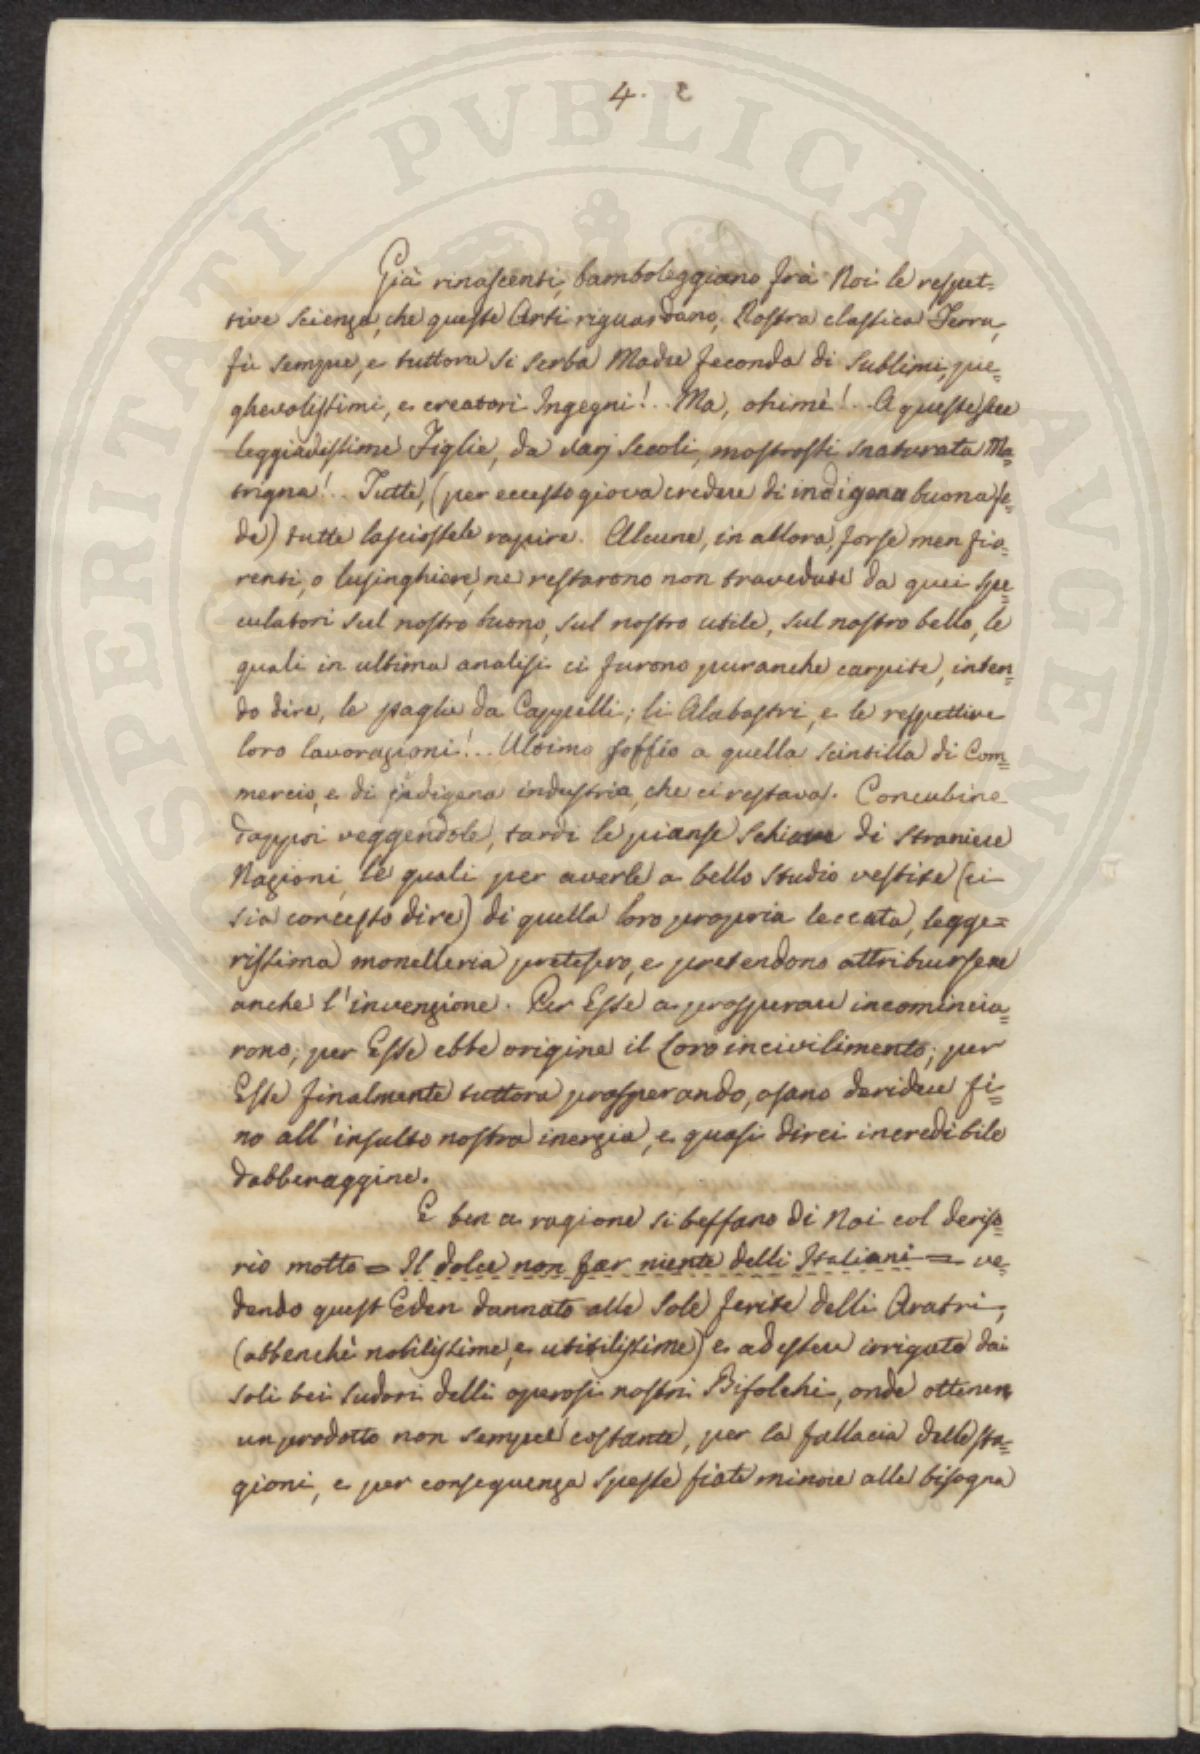 4.
Già rinascenti, bamboleggiano frà Noi le respet=
tive Scienze, che queste Arti riguardano. Nostra classica Terra,
fù sempre, e tuttora si serba Madre feconda di Sublimi, pie=
ghevolissimi, e creatori Ingegni!.. Ma, ohimè!.. A queste sue
leggiadrissime Figlie, da varj Secoli, mostrossi snaturata Ma=
trigna!.. Tutte, (per eccesso giova credere di indigena buona fe=
de) tutte lasciossele rapire. Alcune, in allora, forse men fio=
renti, o lusinghiere, ne restarono non travedute da quei spe=
culatori sul nostro buono, sul nostro utile, sul nostro bello, le
quali in ultima analisi ci furono pur anche carpite, inten=
do dire, le paglie da Cappelli; li Alabastri, e le respettive
loro lavorazioni!.. Ultimo soffio a quella scintilla di Com=
mercio, e di indigena industria, che ci restava. Concubine
dappoi veggendole, tardi le pianse Schiave di Straniere
Nazioni, le quali per averle a bello studio vestite (ci
sia concesso dire) di quella loro propria leccata, legge=
rissima monelleria pretesero, e pretendono attribuirsene
anche l'invenzione. Per Esse a prosperare incomincia=
rono; per Esse ebbe origine il Loro incivilimento; per
Esse finalmente tuttora prosperando, osano deridere fi=
no all'insulto nostra inerzia, e quasi direi incredibile
dabberaggine.
E ben a ragione si beffano di Noi col deriso=
rio motto = Il dolce non far niente delli Italiani = ve=
dendo quest Eden dannato alle sole ferite delli Aratri,
(abbenchè nobilissime, e utitilissime) e ad essere irrigato dai
soli bei sudori delli operosi nostri Bifolchi, onde ottenere
un prodotto non sempre costante, per la fallacia delle sta=
gioni, e per conseguenza spesse fiate minore alle bisogna
SPERITATI PVBLICAE AVGENDAE